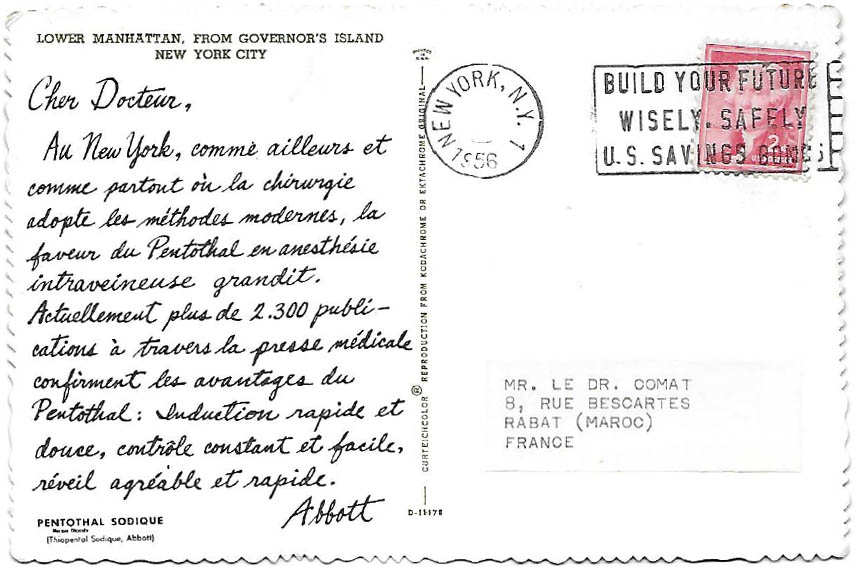 LOWER MANHATTAN, FROM GOVERNOR'S ISLAND
NEW YORK CITY
Cher Docteur,
Au New York, comme ailleurs et
comme partout où la chirurgie
adopte les méthodes modernes, la
faveur du Pentothal en anesthésie
intraveineuse grandit.
Actuellement plus de 2.300 publi-
cations à travers la presse médicale
confirment les avantages du
Pentothal: Induction rapide et
douce, contrôle constant et facile,
réveil agréable et rapide.
Abbott
PENTOTHAL SODIQUE
(Thiopental Sodique, Abbott)
CURTEICHCOLOR ® REPRODUCTION FROM KODACHROME OR EKTACHROME ORIGINAL
D-11178
NEW YORK, N.Y. 1
1956
BUILD YOUR FUTURE
WISELY, SAFELY
U.S. SAVINGS BONDS
2
MR. LE DR. COMAT
8, RUE BESCARTES
RABAT (MAROC)
FRANCE